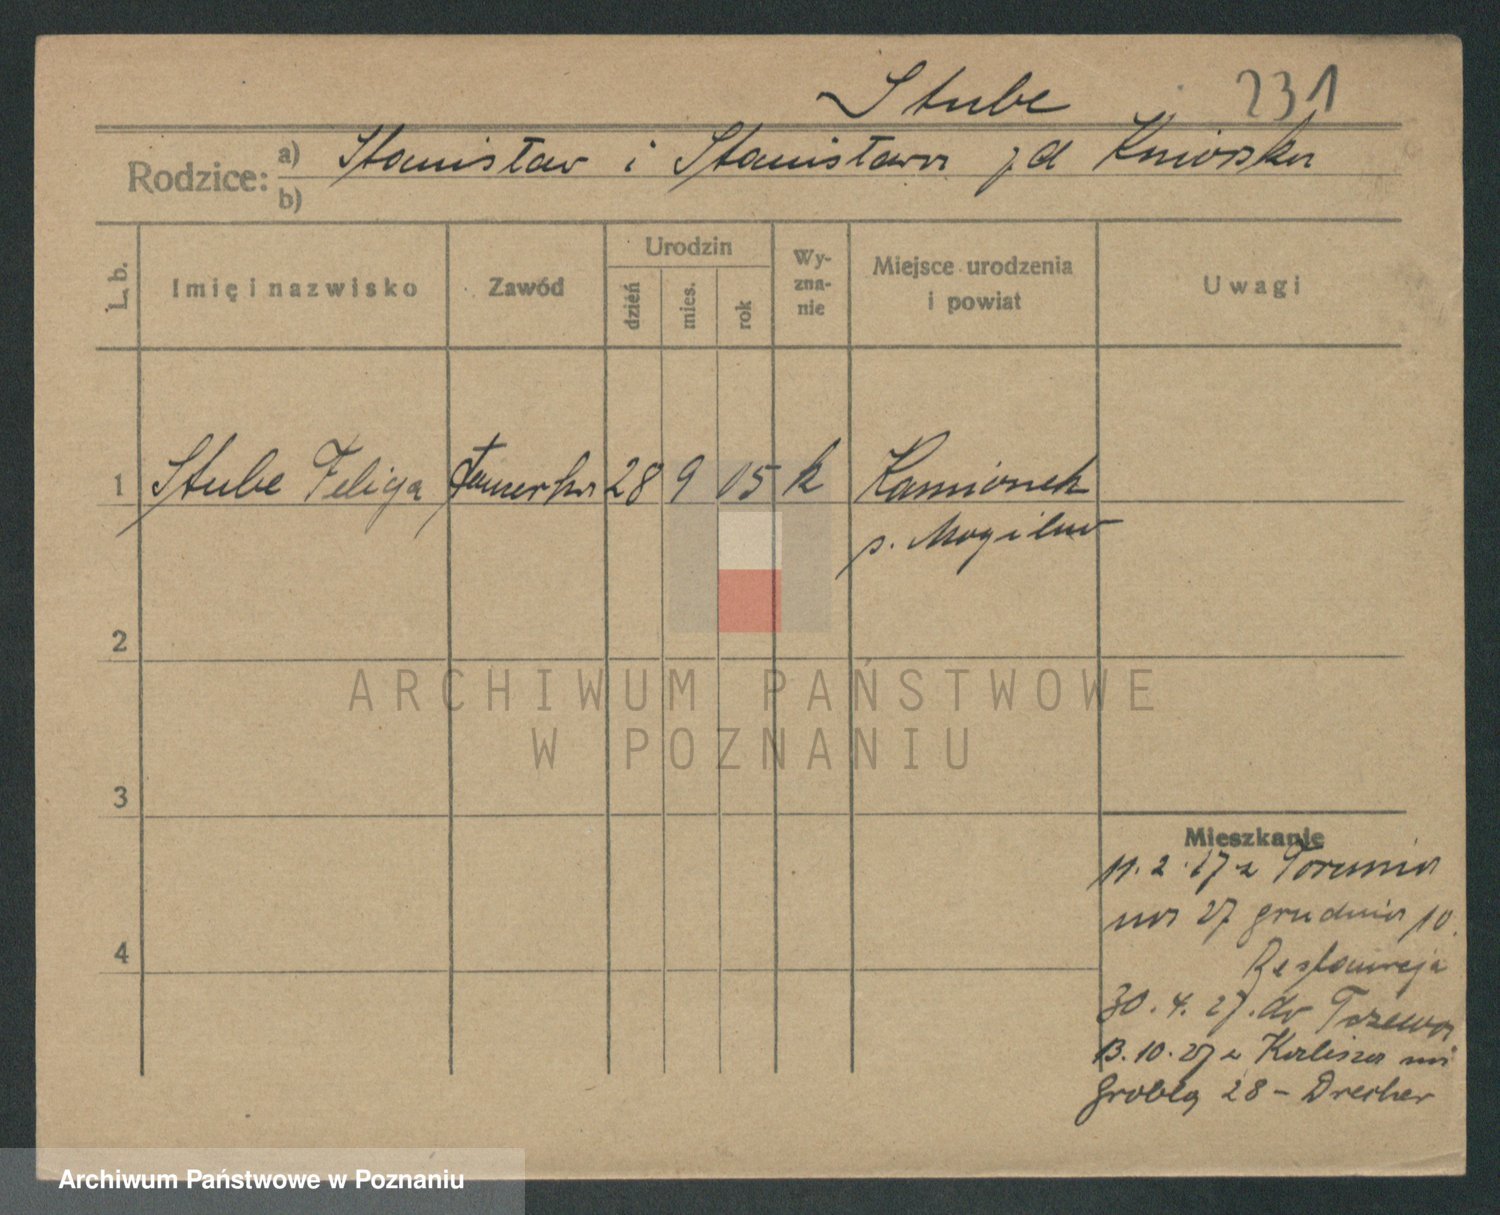 Stube 231
Rodzice: a) Stanisław i Stanisława zd
b)
L. b. Imię i nazwisko Zawód Urodzin dzień mies. rok Wy-zna-nie Miejsce urodzenia i powiat Uwagi
1 Stube Feliga 28 9 05 k Kamionek
p. Mogilno
2
ARCHIWUM PAŃSTWOWE
W POZNANIU
3
Mieszkanie
11.2.27 z Torunia
na 27 grudnia 10.
Restauracja
30.4.27. do Tczewa
4
13.10.27 z Kalisza na
Groblą 28 – Drecher
Archiwum Państwowe w Poznaniu